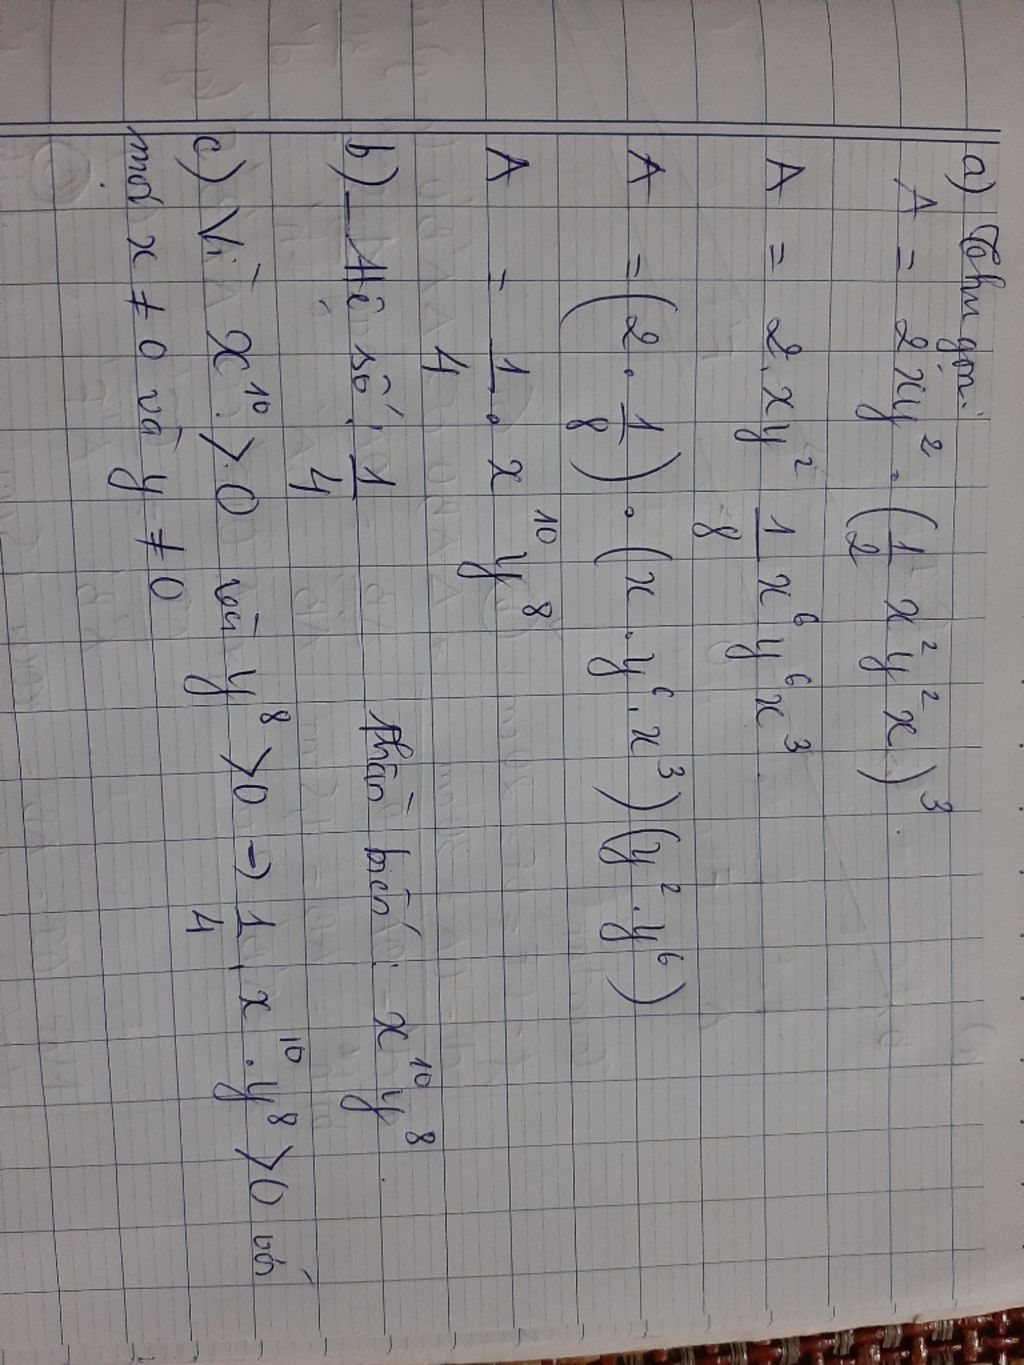 a) Thu gọn:
A = 2xy² . (1/2 x² y² x)³
A = 2. xy² 1/8 x⁶ y⁶ x³
A = (2 . 1/8) . (x . y⁶ . x³) (y² . y⁶)
A = 1/4 . x¹⁰ y⁸
b) Hệ số: 1/4 Phần biến: x¹⁰ y⁸
c) Vì x¹⁰ > 0 với y⁸ > 0 → 1/4 . x¹⁰ . y⁸ > 0 với
mọi x ≠ 0 và y ≠ 0